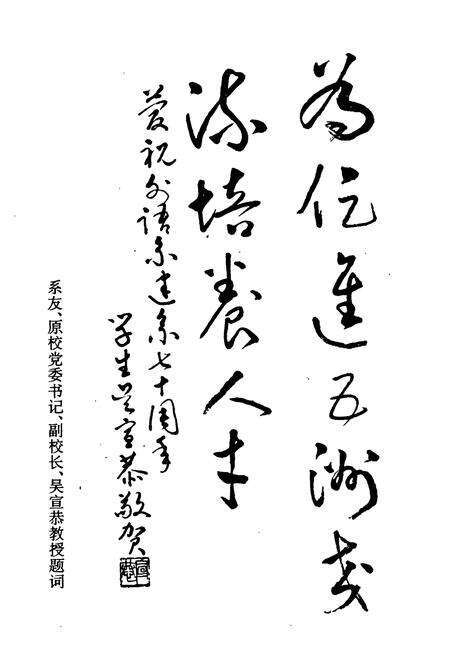 为促进五洲交
流培养人才
庆祝外语系建系七十周年
学生吴宣恭敬贺
系友、原校党委书记、副校长、吴宣恭教授题词